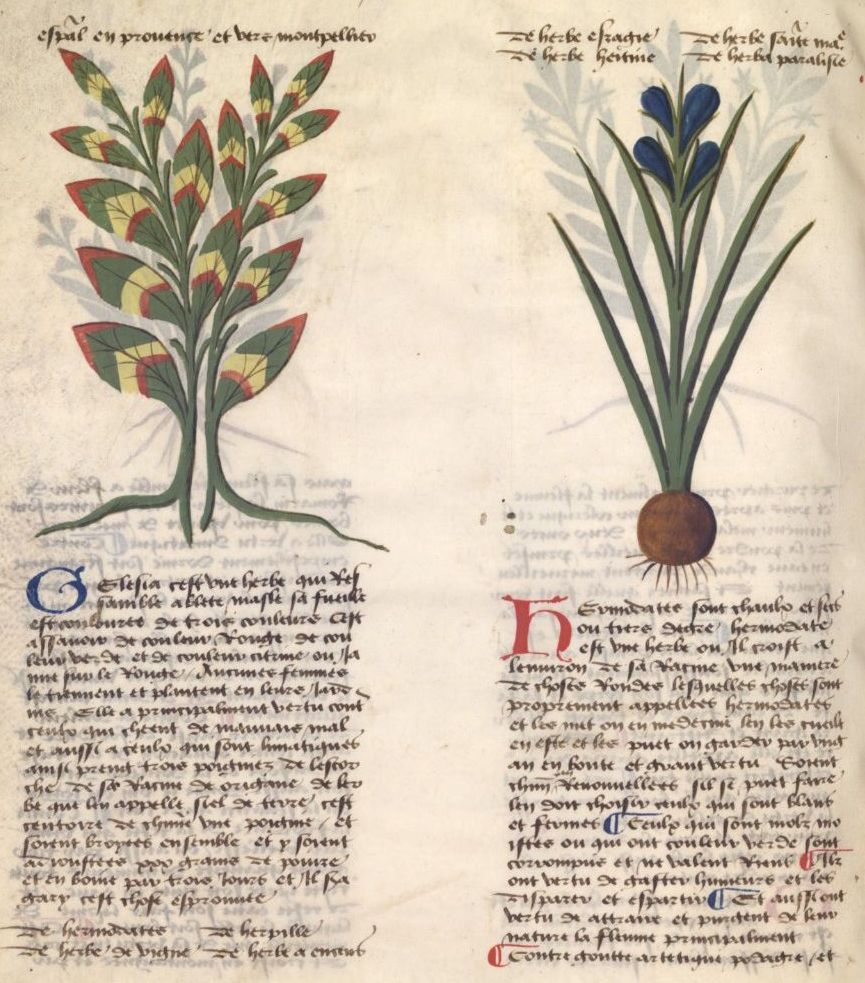 espãl en prouence et vers montpellier
Gglesia cest vne herbe qui Res
samble a blete masle sa fueille
est coulouree de trois couleurs Cest
assauoir de couleur Rouge de cou
leur verde et de couleur citrine ou Ja
une sur le Rouge Aucunes femmes
le tiennent et plantent en leurs Jardĩ
ins Elle a principalment vertu cont̃
ceulx qui cheent de mauuais mal
et aussi a ceulx qui sont lunatiques
ainsi preng trois poigniez de lescor
che de sa Racine de origane de ler
be que len appelle fiel de terre cest
centoire de chũne vne poignie et
soient broyees ensemble et y soient
adioustees xxx grains de poiure
et en boiue par trois Jours et Jl sa
gary cest chose esprouuee
De hermodates De herpille
De herbe de vigne De herbe a encens
De herbe esragie De herbe saĩte maẽ
De herbe heritine De herba paralisie
Hermodates sont chaulx et secs
ou tiers degre hermodate
est vne herbe ou Jl croist a
lenuiron de sa Racine vne maniere
de choses Rondes lesquelles choses sont
proprement appellees hermodates
et les met on en medecine len les cueilt
en este et les puet on garder par vng
an en bonte et grant vertu Soient
chũn Renouuellees sil se puet faire
len doit choisir ceulx qui sont blans
et fermes Ceulx qui sont molz mo
istes ou qui ont couleur verde sont
corrompus et ne valent Riens Ilz
ont vertu de gaster humeurs et les
disparer et espartir Et aussi ont
vertu de attraire et purgent de leur
nature la fleume principalment
Contre goutte artetique podagre et